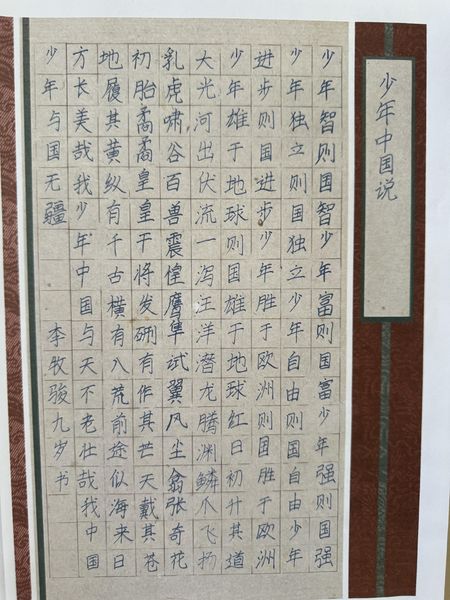 少年中国说
少年智则国智少年富则国富少年强则国强
少年独立则国独立少年自由则国自由少年
进步则国进步少年胜于欧洲则国胜于欧洲
少年雄于地球则国雄于地球红日初升其道
大光河出伏流一泻汪洋潜龙腾渊鳞爪飞扬
乳虎啸谷百兽震惶鹰隼试翼风尘翕张奇花
初胎矞矞皇皇干将发硎有作其芒天戴其苍
地履其黄纵有千古横有八荒前途似海来日
方长美哉我少年中国与天不老壮哉我中国
少年与国无疆 李牧骏九岁书